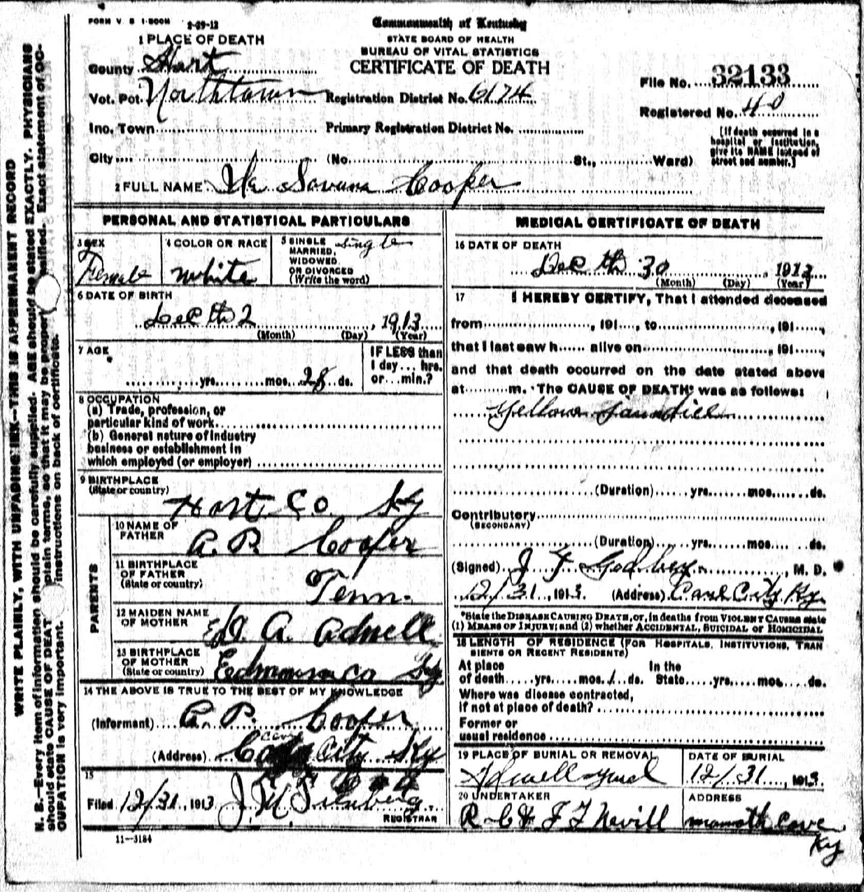 FORM V. S 1-500M 8-29-12
Commonwealth of Kentucky
STATE BOARD OF HEALTH
BUREAU OF VITAL STATISTICS
CERTIFICATE OF DEATH
1 PLACE OF DEATH
County Hart
Vot. Pct Northtown Registration District No. 6174
Inc. Town Primary Registration District No.
City (No. St., Ward)
File No. 32133
Registered No. 40
[If death occurred in a
hospital or institution,
give its NAME instead of
street and number.]
2 FULL NAME Savana Cooper
PERSONAL AND STATISTICAL PARTICULARS
3 SEX
Female
4 COLOR OR RACE
White
5 SINGLE single
MARRIED,
WIDOWED
OR DIVORCED
(Write the word)
6 DATE OF BIRTH
Dec th 2, 1913
(Month) (Day) (Year)
7 AGE
yrs. mos. 28 ds.
IF LESS than
1 day... hrs.
or... min.?
8 OCCUPATION
(a) Trade, profession, or
particular kind of work
(b) General nature of industry
business or establishment in
which employed (or employer)
9 BIRTHPLACE
(State or country)
Hart Co Ky
PARENTS
10 NAME OF
FATHER
A. P. Cooper
11 BIRTHPLACE
OF FATHER
(State or country)
Tenn.
12 MAIDEN NAME
OF MOTHER
A.
13 BIRTHPLACE
OF MOTHER
(State or country)
Edmonson Co Ky
14 THE ABOVE IS TRUE TO THE BEST OF MY KNOWLEDGE
(Informant) A. P. Cooper
(Address) Cave City Ky
15
Filed 12/31, 1913 J. M.
REGISTRAR
11-3184
MEDICAL CERTIFICATE OF DEATH
16 DATE OF DEATH
Dec th 30, 1913
(Month) (Day) (Year)
17 I HEREBY CERTIFY, That I attended deceased
from, 191, to, 191,
that I last saw h alive on, 191,
and that death occurred on the date stated above
at m. The CAUSE OF DEATH* was as follows:
Yellow Jaundice
(Duration) yrs. mos. ds.
Contributory
(SECONDARY)
(Duration) yrs. mos. ds.
(Signed) J. F. Godbey, M. D.
12/31, 1913. (Address) Cave City Ky
*State the DISEASE CAUSING DEATH, or, in deaths from VIOLENT CAUSES state
(1) MEANS OF INJURY; and (2) whether ACCIDENTAL, SUICIDAL or HOMICIDAL
18 LENGTH OF RESIDENCE (FOR HOSPITALS, INSTITUTIONS, TRAN
SIENTS OR RECENT RESIDENTS)
At place In the
of death yrs. mos. ds. State yrs. mos. ds.
Where was disease contracted,
if not at place of death?
Former or
usual residence
19 PLACE OF BURIAL OR REMOVAL
DATE OF BURIAL
12/31, 1913.
20 UNDERTAKER
R C & F F Nevill
ADDRESS
Mamoth Cave
Ky
WRITE PLAINLY, WITH UNFADING INK—THIS IS A PERMANENT RECORD
N. B.—Every item of information should be carefully supplied. AGE should be stated EXACTLY. PHYSICIANS
should state CAUSE OF DEATH plain terms, so that it may be Exact statement of OC-
CUPATION is very important. instructions on back of certificate.